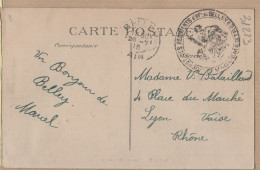 CARTE POSTALE
Correspondance
Un Bonjour de
Belley.
Marcel
Madame V. Bataillard
4 Place du Marché
Lyon Vaise
Rhône